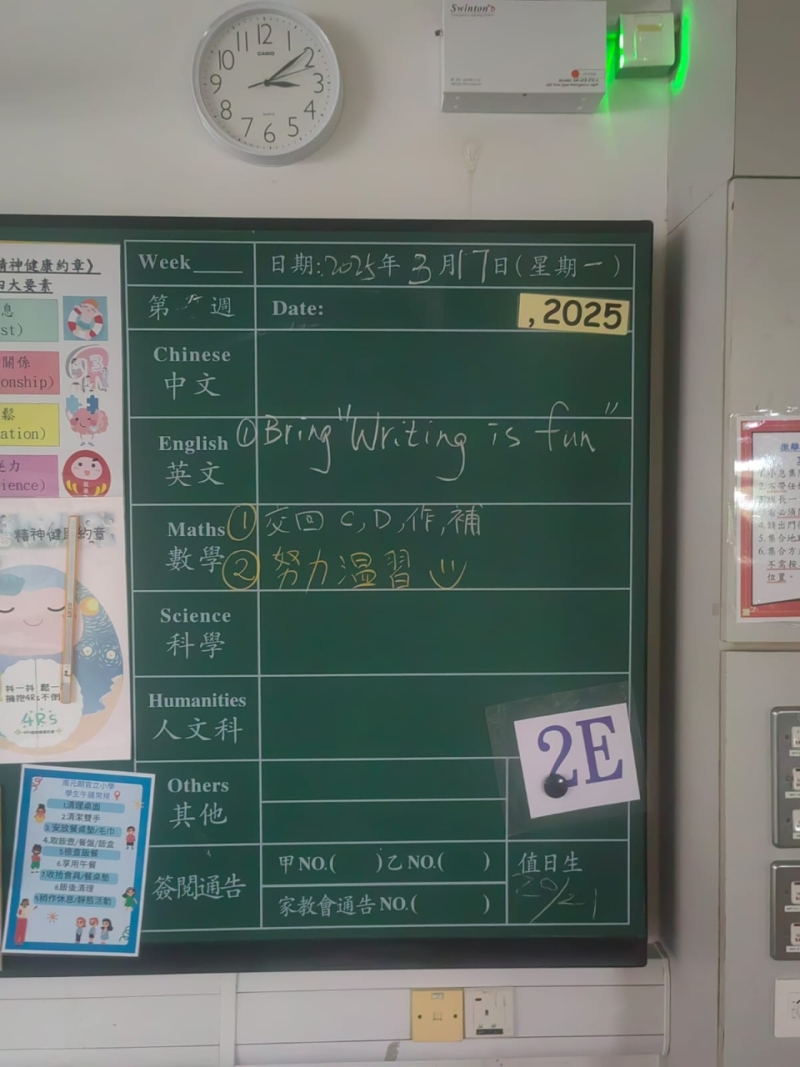 12
11
1
10
2
CASIO
9
3
8
4
7
5
6
Swinton
精神健康約章》
四大要素
Week____
日期:2025年 3月17日(星期一)
第 週
Date:
, 2025
息
st)
關係
onship)
鬆
ation)
逆力
ience)
Chinese
中文
English
英文
① Bring "Writing is fun"
Maths
數學
① 交回 C, D, 作, 補
② 努力溫習
精神健康約章
Science
科學
Humanities
人文科
抖一抖 鬆一
擁抱4Rs不倒
4Rs
2E
Others
其他
簽閱通告
甲NO.( )乙NO.( )
家教會通告NO.( )
值日生
20/21
學生午膳常規
1.清理桌面
2.清潔雙手
3.安放餐桌墊/毛巾
4.取飯壺/餐盤/飯盒
5.檢查飯餐
6.享用午餐
7.收拾食具/餐桌墊
8.飯後清理
9.稍作休息/靜態活動
不需按
位置。